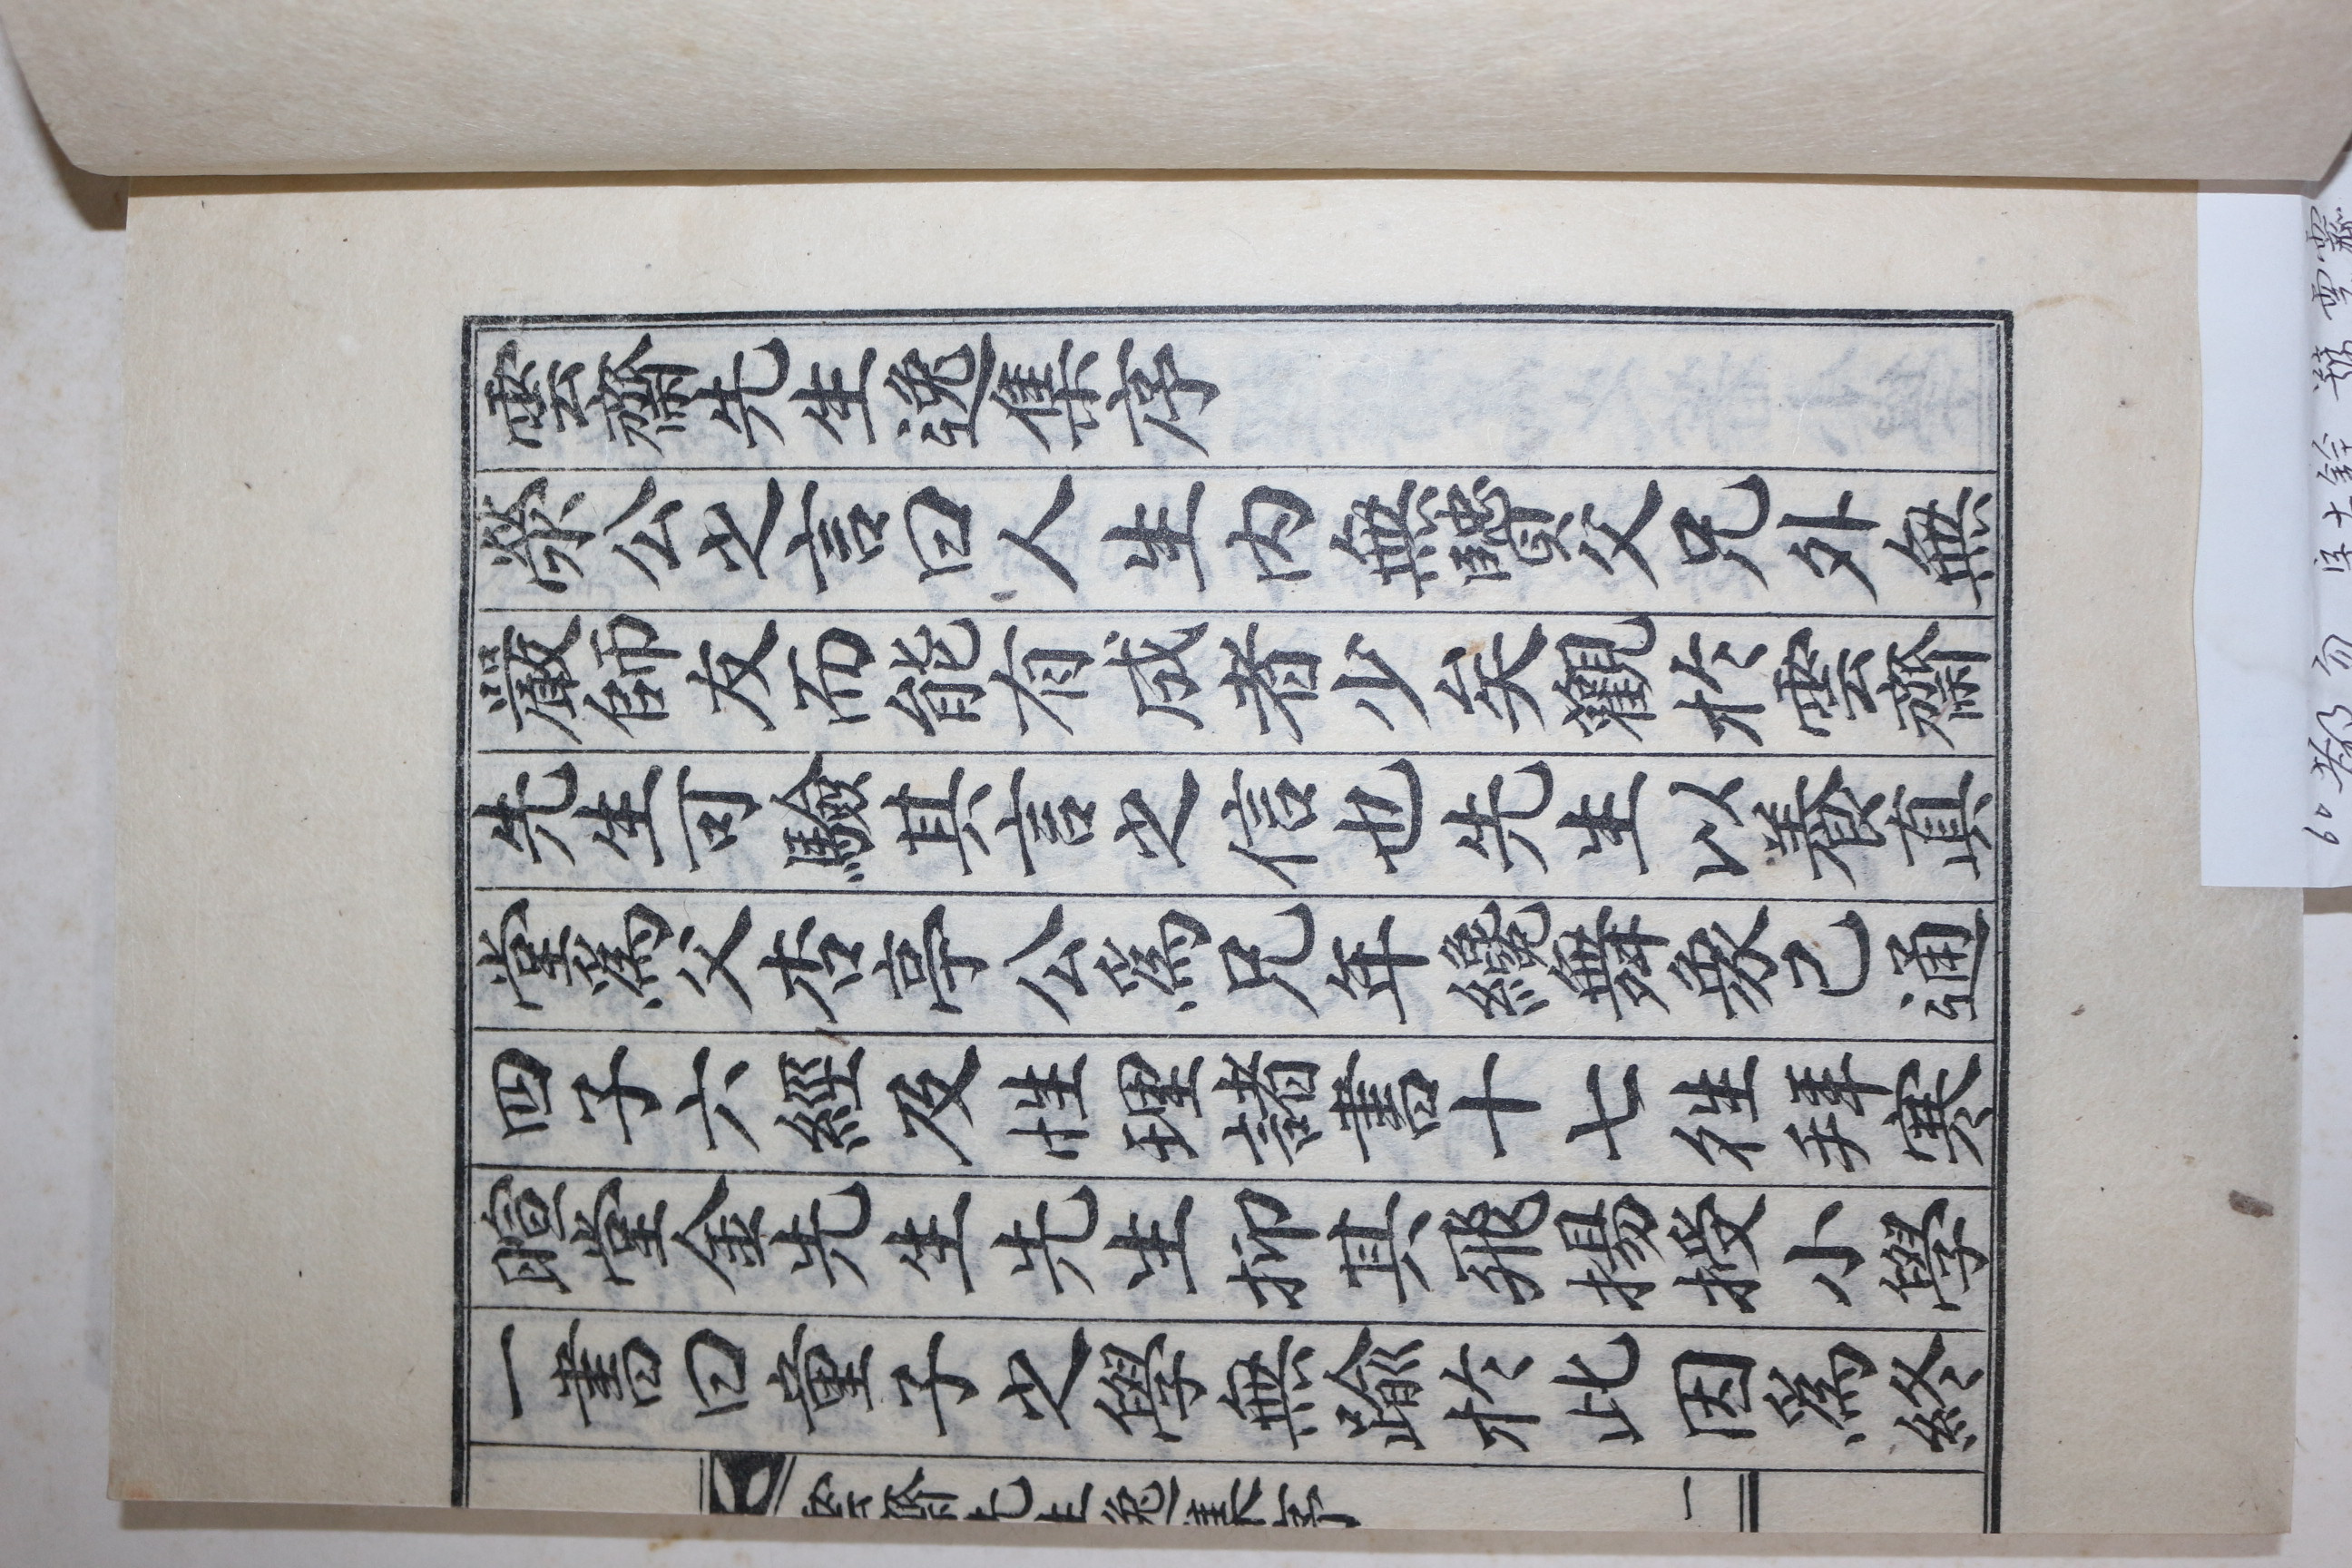 雲齋先生逸集序
滎公之言曰人生內無賢父兄外無
嚴師友而能有成者少矣觀於雲齋
先生可驗其言之信也先生以養真
堂爲父杏亭公爲兄年纔舞象已通
四子六經及性理諸書十七徃拜寒
暄堂金先生先生抑其飛揚授小學
一書曰童子之學無踰於此因爲終
雲齋先生逸集序
一
60